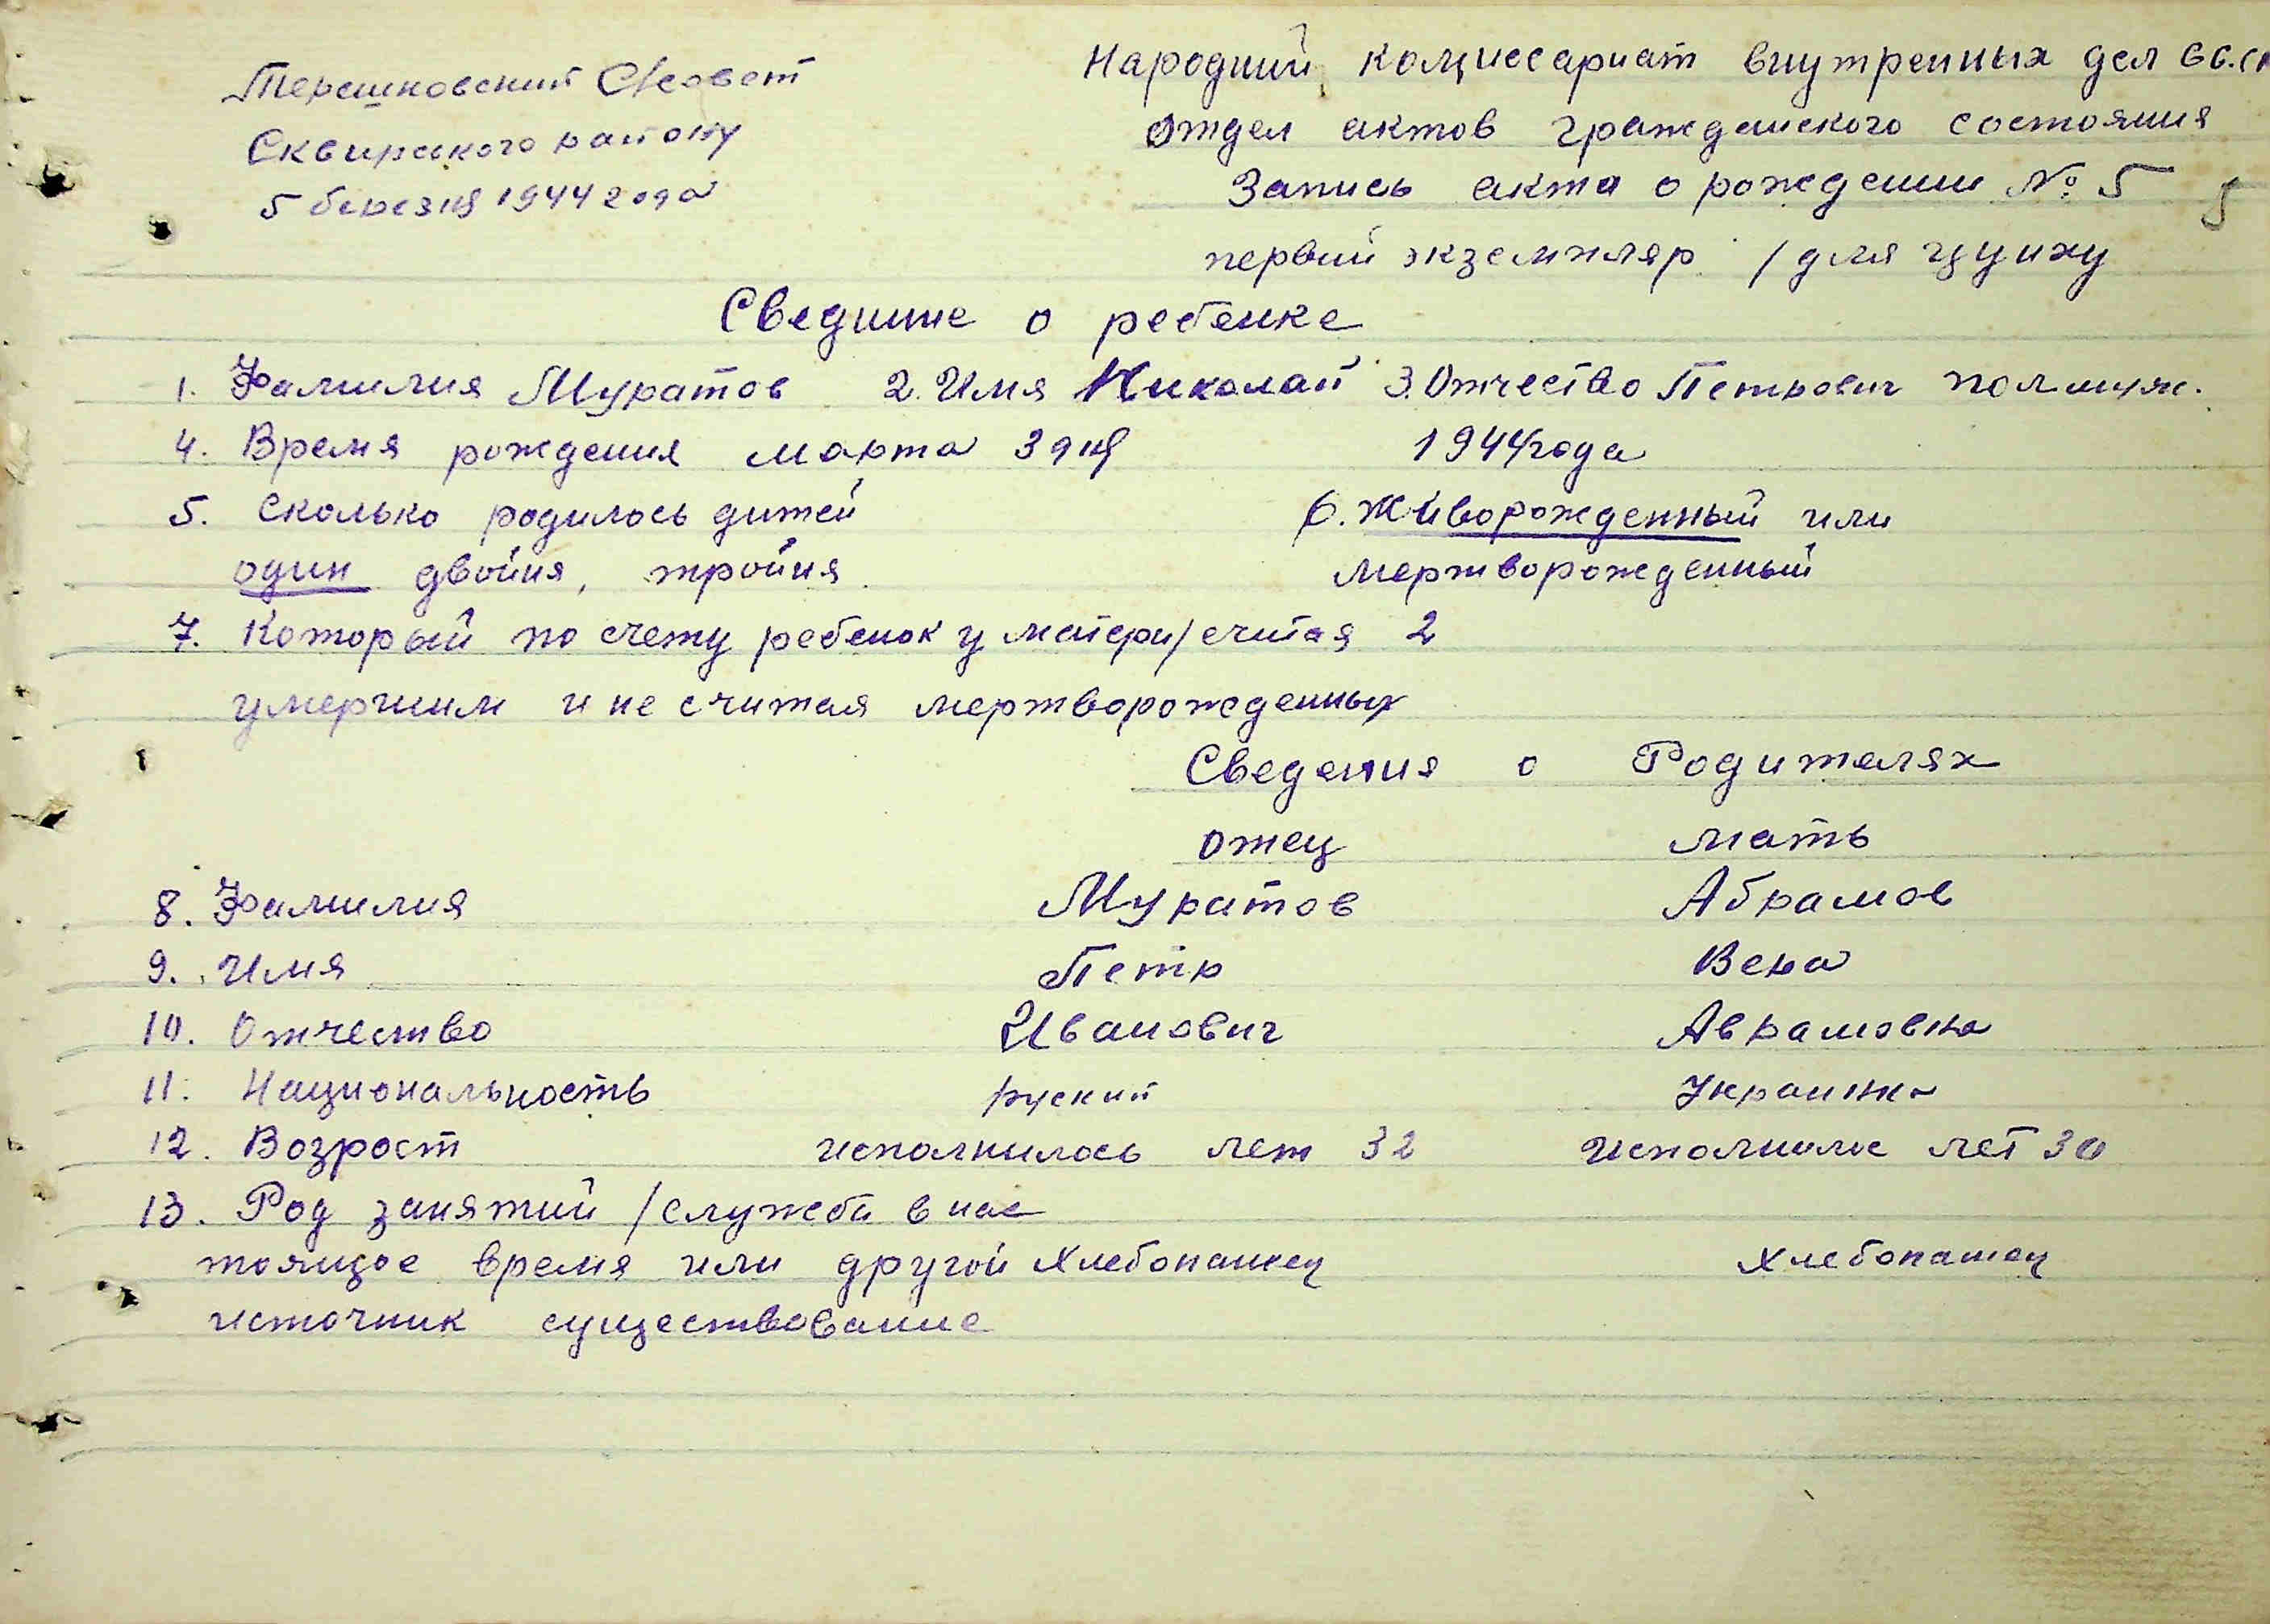 Терешковский С/совет
Сквирского району
5 березня 1944 года
Народний комиссариат внутренных дел
отдел актов гражданского состояния
Запись акта о рождении № 5
5
первый экземпляр /для
Свединие о ребенке
1. Фамилия Муратов 2. Имя Николай 3. Отчество Петрович пол муж.
4. Время рождения марта 3 дня 1944 года
5. Сколько родилось дитей 6. Живорожденный или
один двойня, тройня мертворожденный
7. Который по счету ребенок у матери/считая 2
умершим и не считая мертворожденных
Сведения о Родителях
Отец мать
8. Фамилия Муратов Абрамов
9. Имя Петр Вера
10. Отчество Иванович Аврамовна
11. Национальность руский Украинка
12. Возраст исполнилось лет 32 исполнилос лет 30
13. Род занятий /служба в нас
тоящое время или другой хлебопашец хлебопашец
источник существование